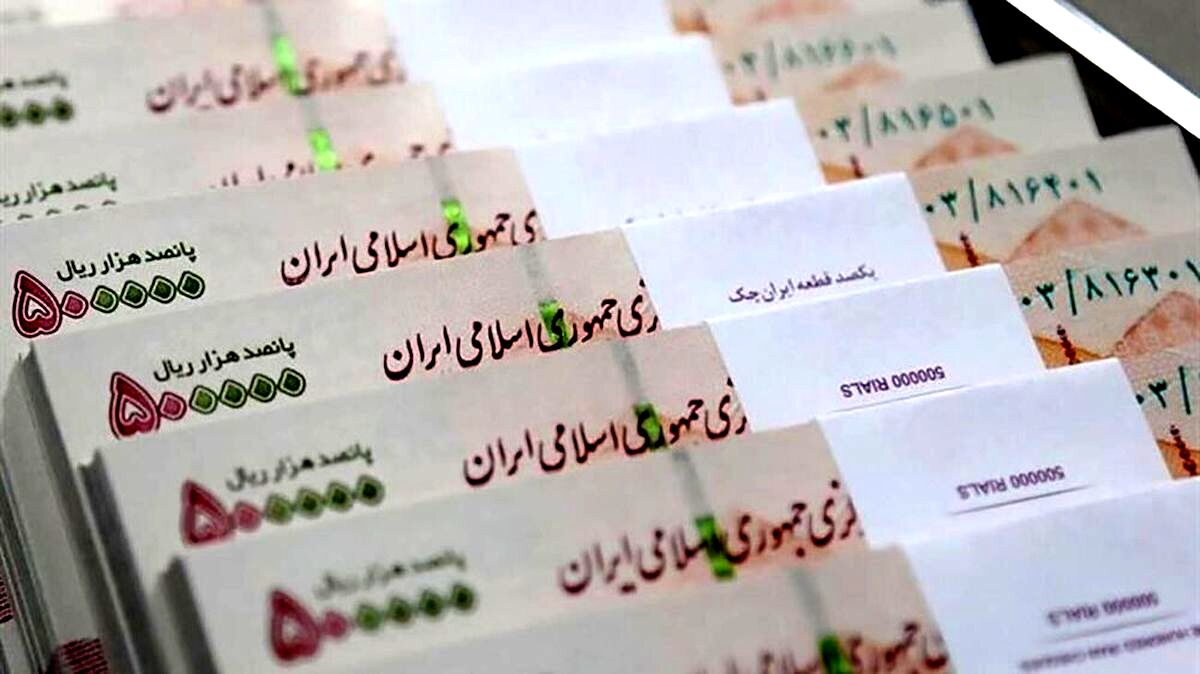 پانصد هزار ریال
جمهوری اسلامی ایران
۰۳/۸۱۶۶۰۱
پانصد هزار ریال
۰۳/۸۱۶۵۰۱
پانصد هزار ریال
۵۰۰۰۰۰
جمهوری اسلامی ایران
۰۳/۸۱۶۴۰۱
یکصد قطعه ایران چک
پانصد هزار ریال
۵۰۰۰۰۰
جمهوری اسلامی ایران
۰۳/۸۱۶۳۰۱
500000 RIALS
پانصد هزار ریال
۵۰۰۰۰۰
جمهوری اسلامی ایران
۰۳/
500000 RIALS
پانصد هزار ریال
۵۰۰۰۰۰
جمهوری اسلامی ایران
500000 RIALS
HUNDRED IRAN CHEQUES